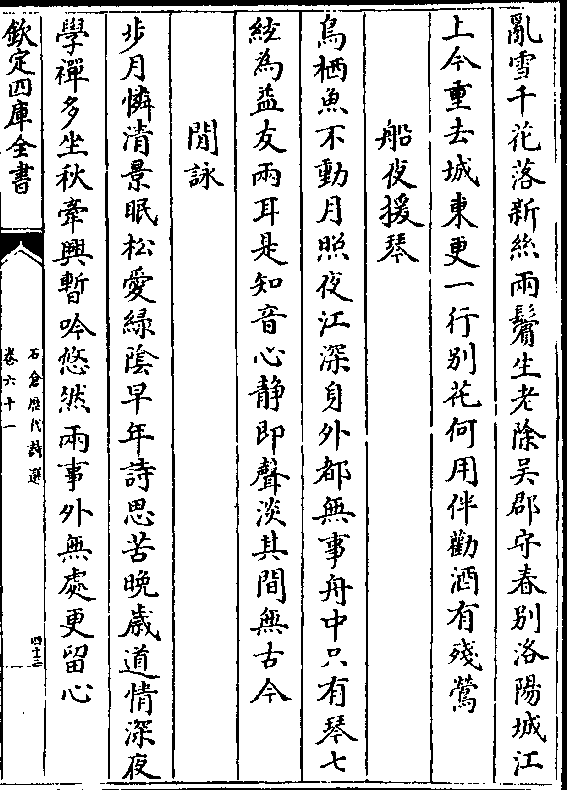 亂雪千花落新絲兩鬢生老除吳郡守春别洛陽城江
上今重去城東更一行别花何用伴勸酒有殘鶯
船夜援琴
鳥栖魚不動月照夜江深身外都無事舟中只有琴七
絃為益友兩耳是知音心静即聲淡其間無古今
閒詠
步月憐清景眠松愛緑陰早年詩思苦晩嵗道情深夜
學禪多坐秋牽興暫吟悠然兩事外無處更留心
欽定四庫全書
石倉歴代詩選
卷六十一
四十三